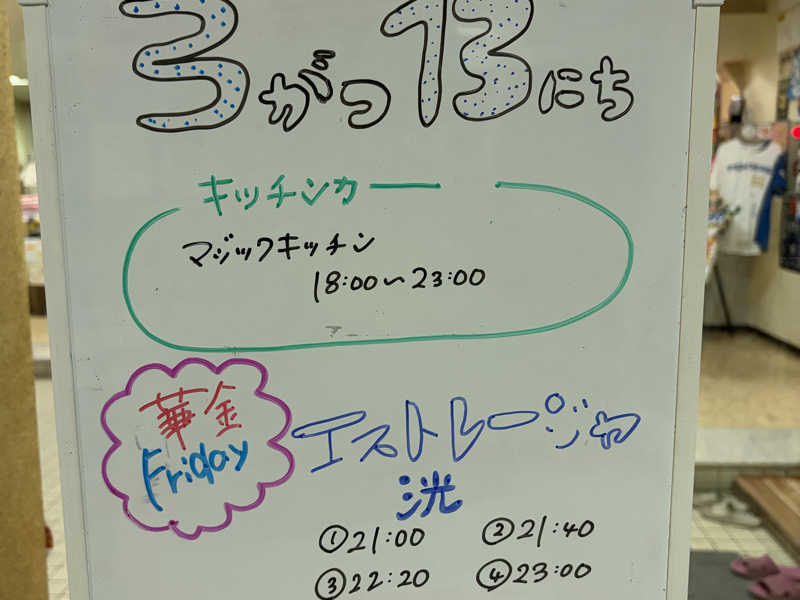 3がつ13にち
キッチンカー
マジックキッチン
18:00〜23:00
華金
Friday
エストレージャ
洸
①21:00 ②21:40
③22:20 ④23:00